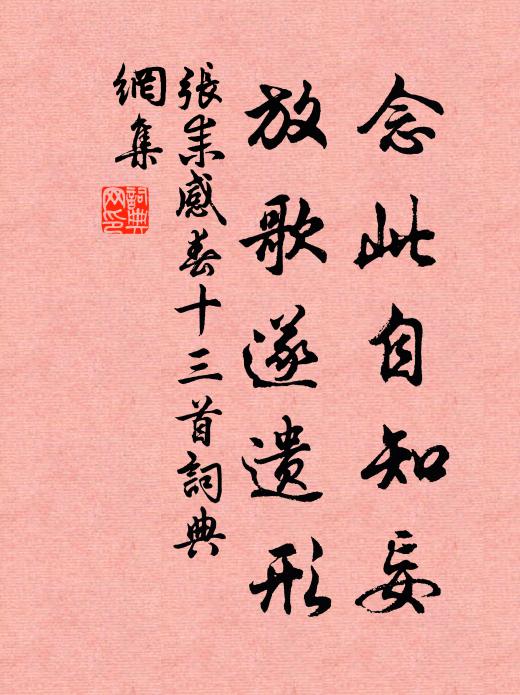 念此自知妄
放歌遂遗形
張耒感春十三首詞典
網集
詞典网印